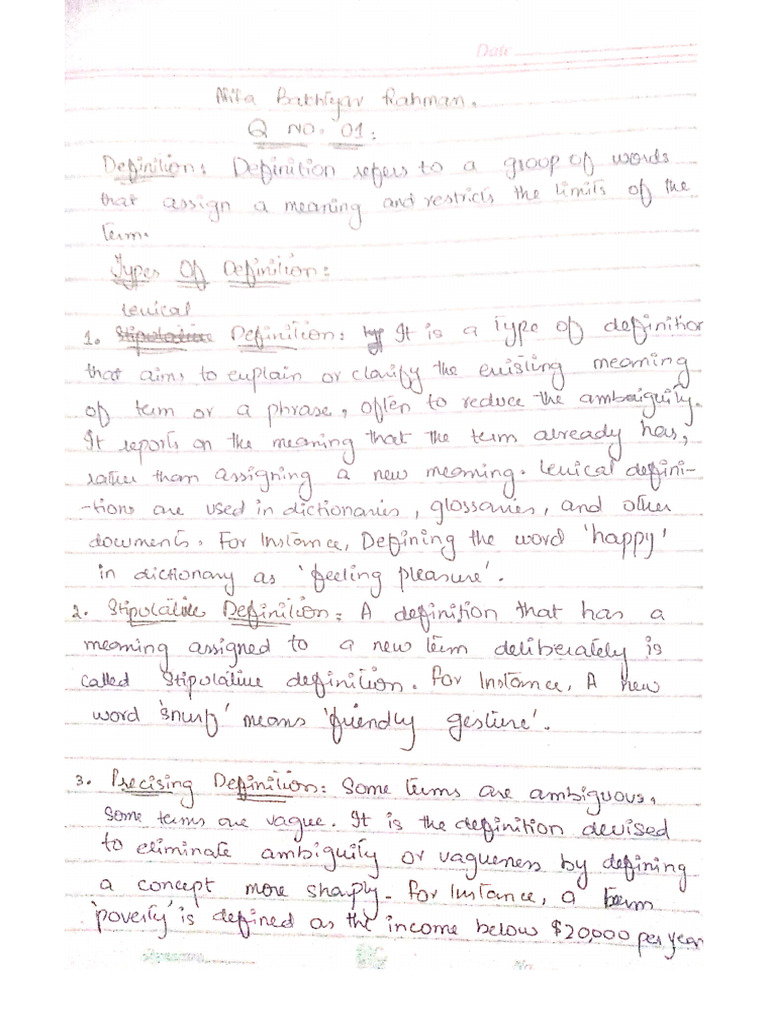 Date
Bakhtyar Rahman.
Q No. 01:
Definition: Definition refers to a group of words
that assign a meaning and restricts the limits of the
term.
Types Of Definition:
Lexical
1. Stipolative Definition: It is a Type of definition
that aims to explain or clarify the existing meaning
of term or a phrase, often to reduce the ambaiguity.
It reports on the meaning that the term already has,
rather than assigning a new meaning. Lexical defini-
-tions are used in dictionaries, glossaries, and other
documents. For Instance, Defining the word 'happy'
in dictionary as 'feeling pleasure'.
2. Stipolative Definition: A definition that has a
meaning assigned to a new term deliberately is
called Stipolative definition. For Instance, A new
word 'snurf' means 'friendly gesture'.
3. Precising Definition: Some terms are ambiguous,
some terms are vague. It is the definition devised
to eliminate ambiguity or vagueness by defining
a concept more sharply. For Instance, a term
'poverty' is defined as the income below $20,000 per year